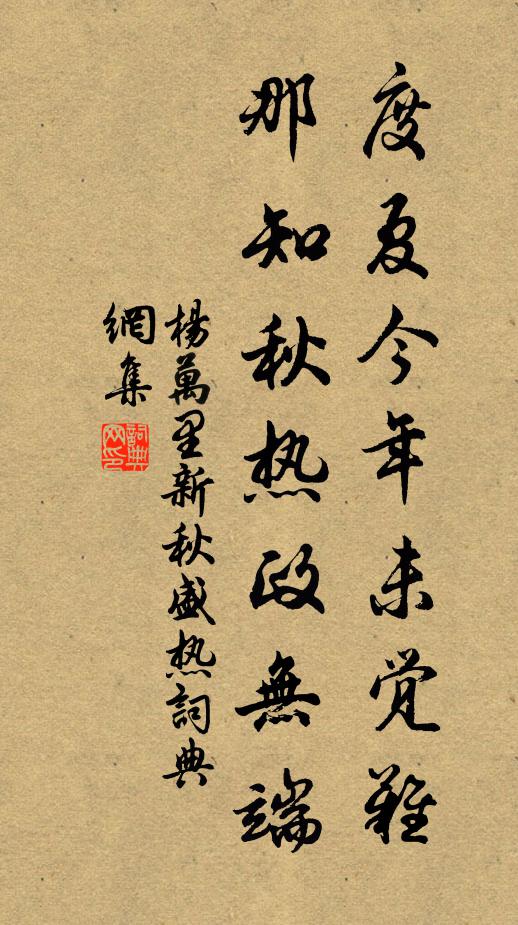 度夏今年未觉難
那知秋热政無端
楊萬里新秋盛热詞典
網集
詞典
网印